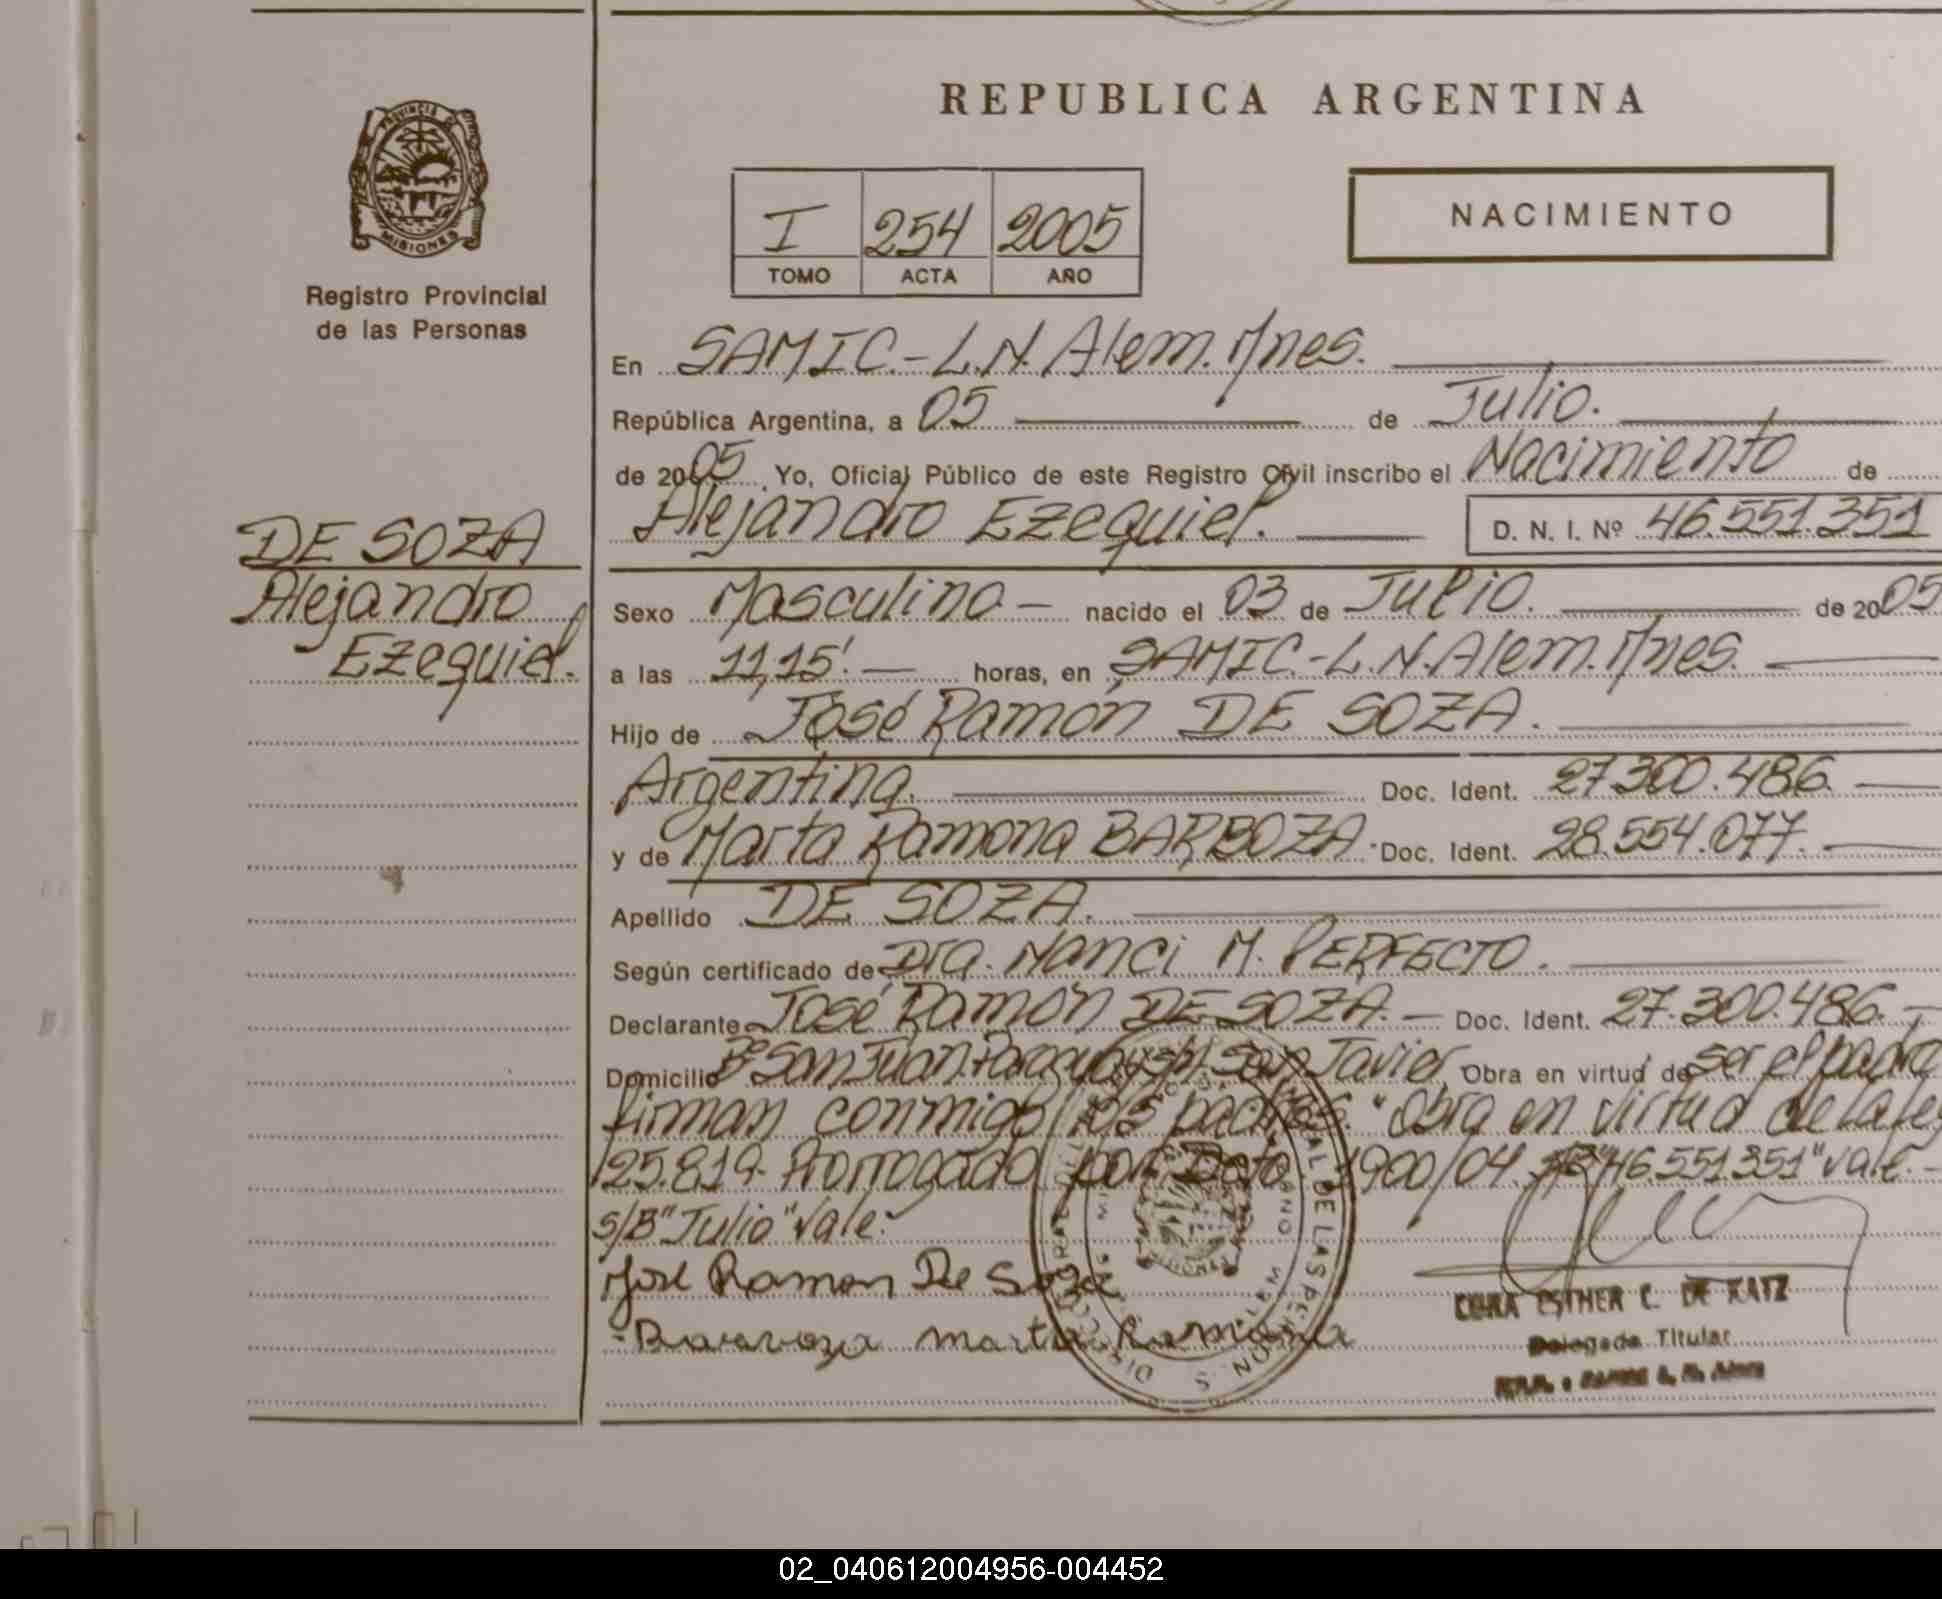 REPUBLICA ARGENTINA
PROVINCIA DE
MISIONES
Registro Provincial
de las Personas
I 254 2005
TOMO ACTA AÑO
NACIMIENTO
En SAMIC.-L.N.Alem.Mnes.
República Argentina, a 05 de Julio.
de 2005. Yo, Oficial Público de este Registro Civil inscribo el Nacimiento de
Alejandro Ezequiel. D. N. I. Nº 46.551.351
DE SOZA
Alejandro
Ezequiel.
Sexo Masculino - nacido el 03 de Julio. de 2005
a las 11,15'. horas, en SAMIC.-L.N.Alem.Mnes.
Hijo de José Ramón DE SOZA.
Argentina. Doc. Ident. 27.300.486.
y de Marta Ramona BARBOZA. Doc. Ident. 28.554.077.
Apellido DE SOZA.
Según certificado de Dra. Nanci M. PERFECTO.
Declarante José Ramón DE SOZA. - Doc. Ident. 27.300.486.-
Domicilio Bº San Juan. San Javier, Obra en virtud de ser el padre
firman conmigo los padres. "Obra en virtud de la ley
25.819- Prorrogado por Dcto. 1900/04 "46.551.351" vale.-
S/B "Julio" vale.
José Ramon De Soza
Barvoza marta Ramona
CORA ESTHER C. DE KATZ
Delegada Titular
02_040612004956-004452